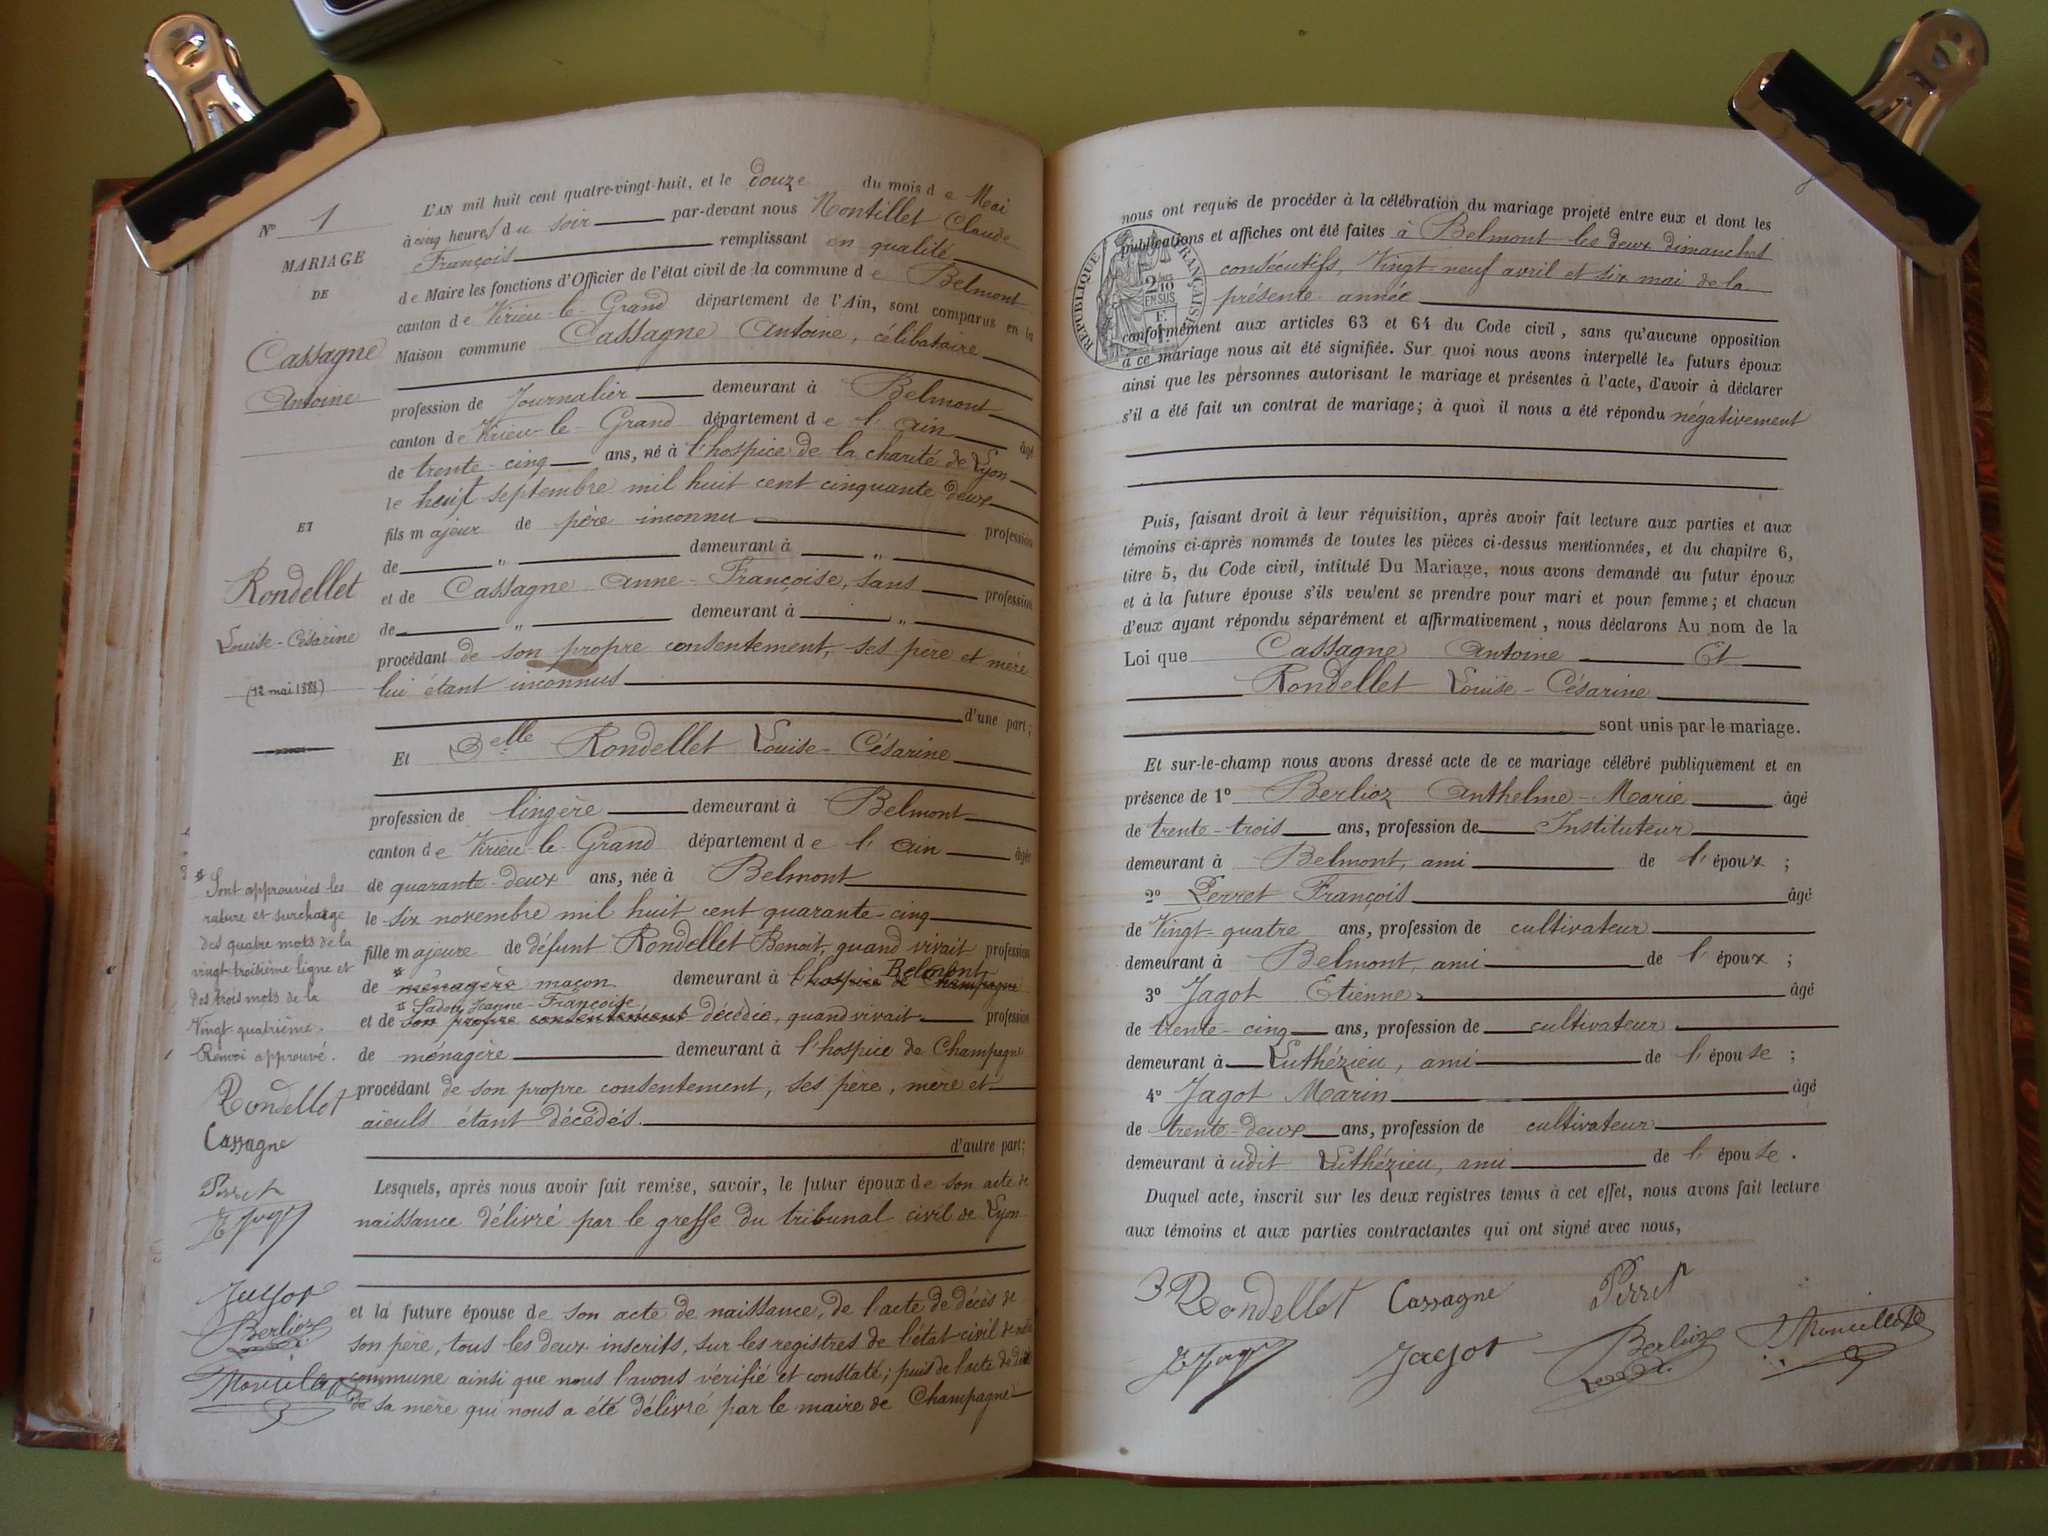 N° 1
MARIAGE
DE
Cassagne
Antoine
ET
Rondellet
Louise-Césarine
(12 mai 1888)
L'AN mil huit cent quatre-vingt-huit, et le douze du mois de Mai
à cinq heures du soir par-devant nous Montillet Claude
François remplissant en qualité
de Maire les fonctions d'Officier de l'état civil de la commune de Belmont
canton de Virieu-le-Grand département de l'Ain, sont comparus en la
Maison commune Cassagne Antoine, célibataire
profession de Journalier demeurant à Belmont
canton de Virieu-le-Grand département de l'Ain âgé
de trente-cinq ans, né à l'hospice de la charité de Lyon
le huit septembre mil huit cent cinquante-deux
fils majeur de père inconnu profession
de " demeurant à "
et de Cassagne Anne-Françoise, sans profession
de " demeurant à "
procédant de son propre consentement, ses père et mère
lui étant inconnus
d'une part;
Et Delle Rondellet Louise-Césarine
profession de lingère demeurant à Belmont
canton de Virieu-le-Grand département de l'Ain âgée
de quarante-deux ans, née à Belmont
le six novembre mil huit cent quarante-cinq
fille majeure de défunt Rondellet Benoit, quand vivait profession
de * ménagère maçon demeurant à l'hospice de Champagne Belmont
* Sadou Jeanne-Françoise
et de son propre consentement décédée, quand vivait profession
de ménagère demeurant à l'hospice de Champagne
procédant de son propre consentement, ses père, mère et
aïeuls étant décédés.
d'autre part;
Lesquels, après nous avoir fait remise, savoir, le futur époux de son acte de
naissance délivré par le greffe du tribunal civil de Lyon
et la future épouse de son acte de naissance, de l'acte de décès de
son père, tous les deux inscrits, sur les registres de l'état-civil de notre
commune ainsi que nous l'avons vérifié et constaté; puis de l'acte de décès
de sa mère qui nous a été délivré par le maire de Champagne
* Sont approuvées les
rature et surcharge
des quatre mots de la
vingt-troisième ligne et
des trois mots de la
Vingt quatrième.
Renvoi approuvé.
Rondellet
Cassagne
Perret
E Jagot
Jagot
Berlioz
Montillet
nous ont requis de procéder à la célébration du mariage projeté entre eux et dont les
publications et affiches ont été faites à Belmont les deux dimanches
consécutifs, Vingt-neuf avril et six mai de la
présente année
RÉPUBLIQUE FRANÇAISE
2 10
EN SUS
conformément aux articles 63 et 64 du Code civil, sans qu'aucune opposition
à ce mariage nous ait été signifiée. Sur quoi nous avons interpellé les futurs époux
ainsi que les personnes autorisant le mariage et présentes à l'acte, d'avoir à déclarer
s'il a été fait un contrat de mariage; à quoi il nous a été répondu négativement
Puis, faisant droit à leur réquisition, après avoir fait lecture aux parties et aux
témoins ci-après nommés de toutes les pièces ci-dessus mentionnées, et du chapitre 6,
titre 5, du Code civil, intitulé Du Mariage, nous avons demandé au futur époux
et à la future épouse s'ils veulent se prendre pour mari et pour femme; et chacun
d'eux ayant répondu séparément et affirmativement, nous déclarons Au nom de la
Loi que Cassagne Antoine Et
Rondellet Louise-Césarine
sont unis par le mariage.
Et sur-le-champ nous avons dressé acte de ce mariage célébré publiquement et en
présence de 1° Berlioz Anthelme-Marie âgé
de trente-trois ans, profession de Instituteur
demeurant à Belmont, ami de l'époux;
2° Perret François âgé
de Vingt-quatre ans, profession de cultivateur
demeurant à Belmont, ami de l'époux;
3° Jagot Etienne âgé
de trente-cinq ans, profession de cultivateur
demeurant à Luthézieu, ami de l'épouse;
4° Jagot Marin âgé
de trente-deux ans, profession de cultivateur
demeurant à udit Luthézieu, ami de l'épouse.
Duquel acte, inscrit sur les deux registres tenus à cet effet, nous avons fait lecture
aux témoins et aux parties contractantes qui ont signé avec nous,
Rondellet Cassagne Perret
E Jagot Jagot Berlioz Montillet